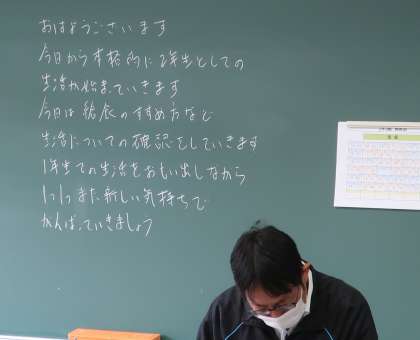 おはようございます
今日から本格的に2年生としての
生活が始まっていきます
今日は給食のすすめ方など
生活についての確認をしていきます
1年生での生活をおもい出しながら
また新しい気持ちで
がんばっていきましょう